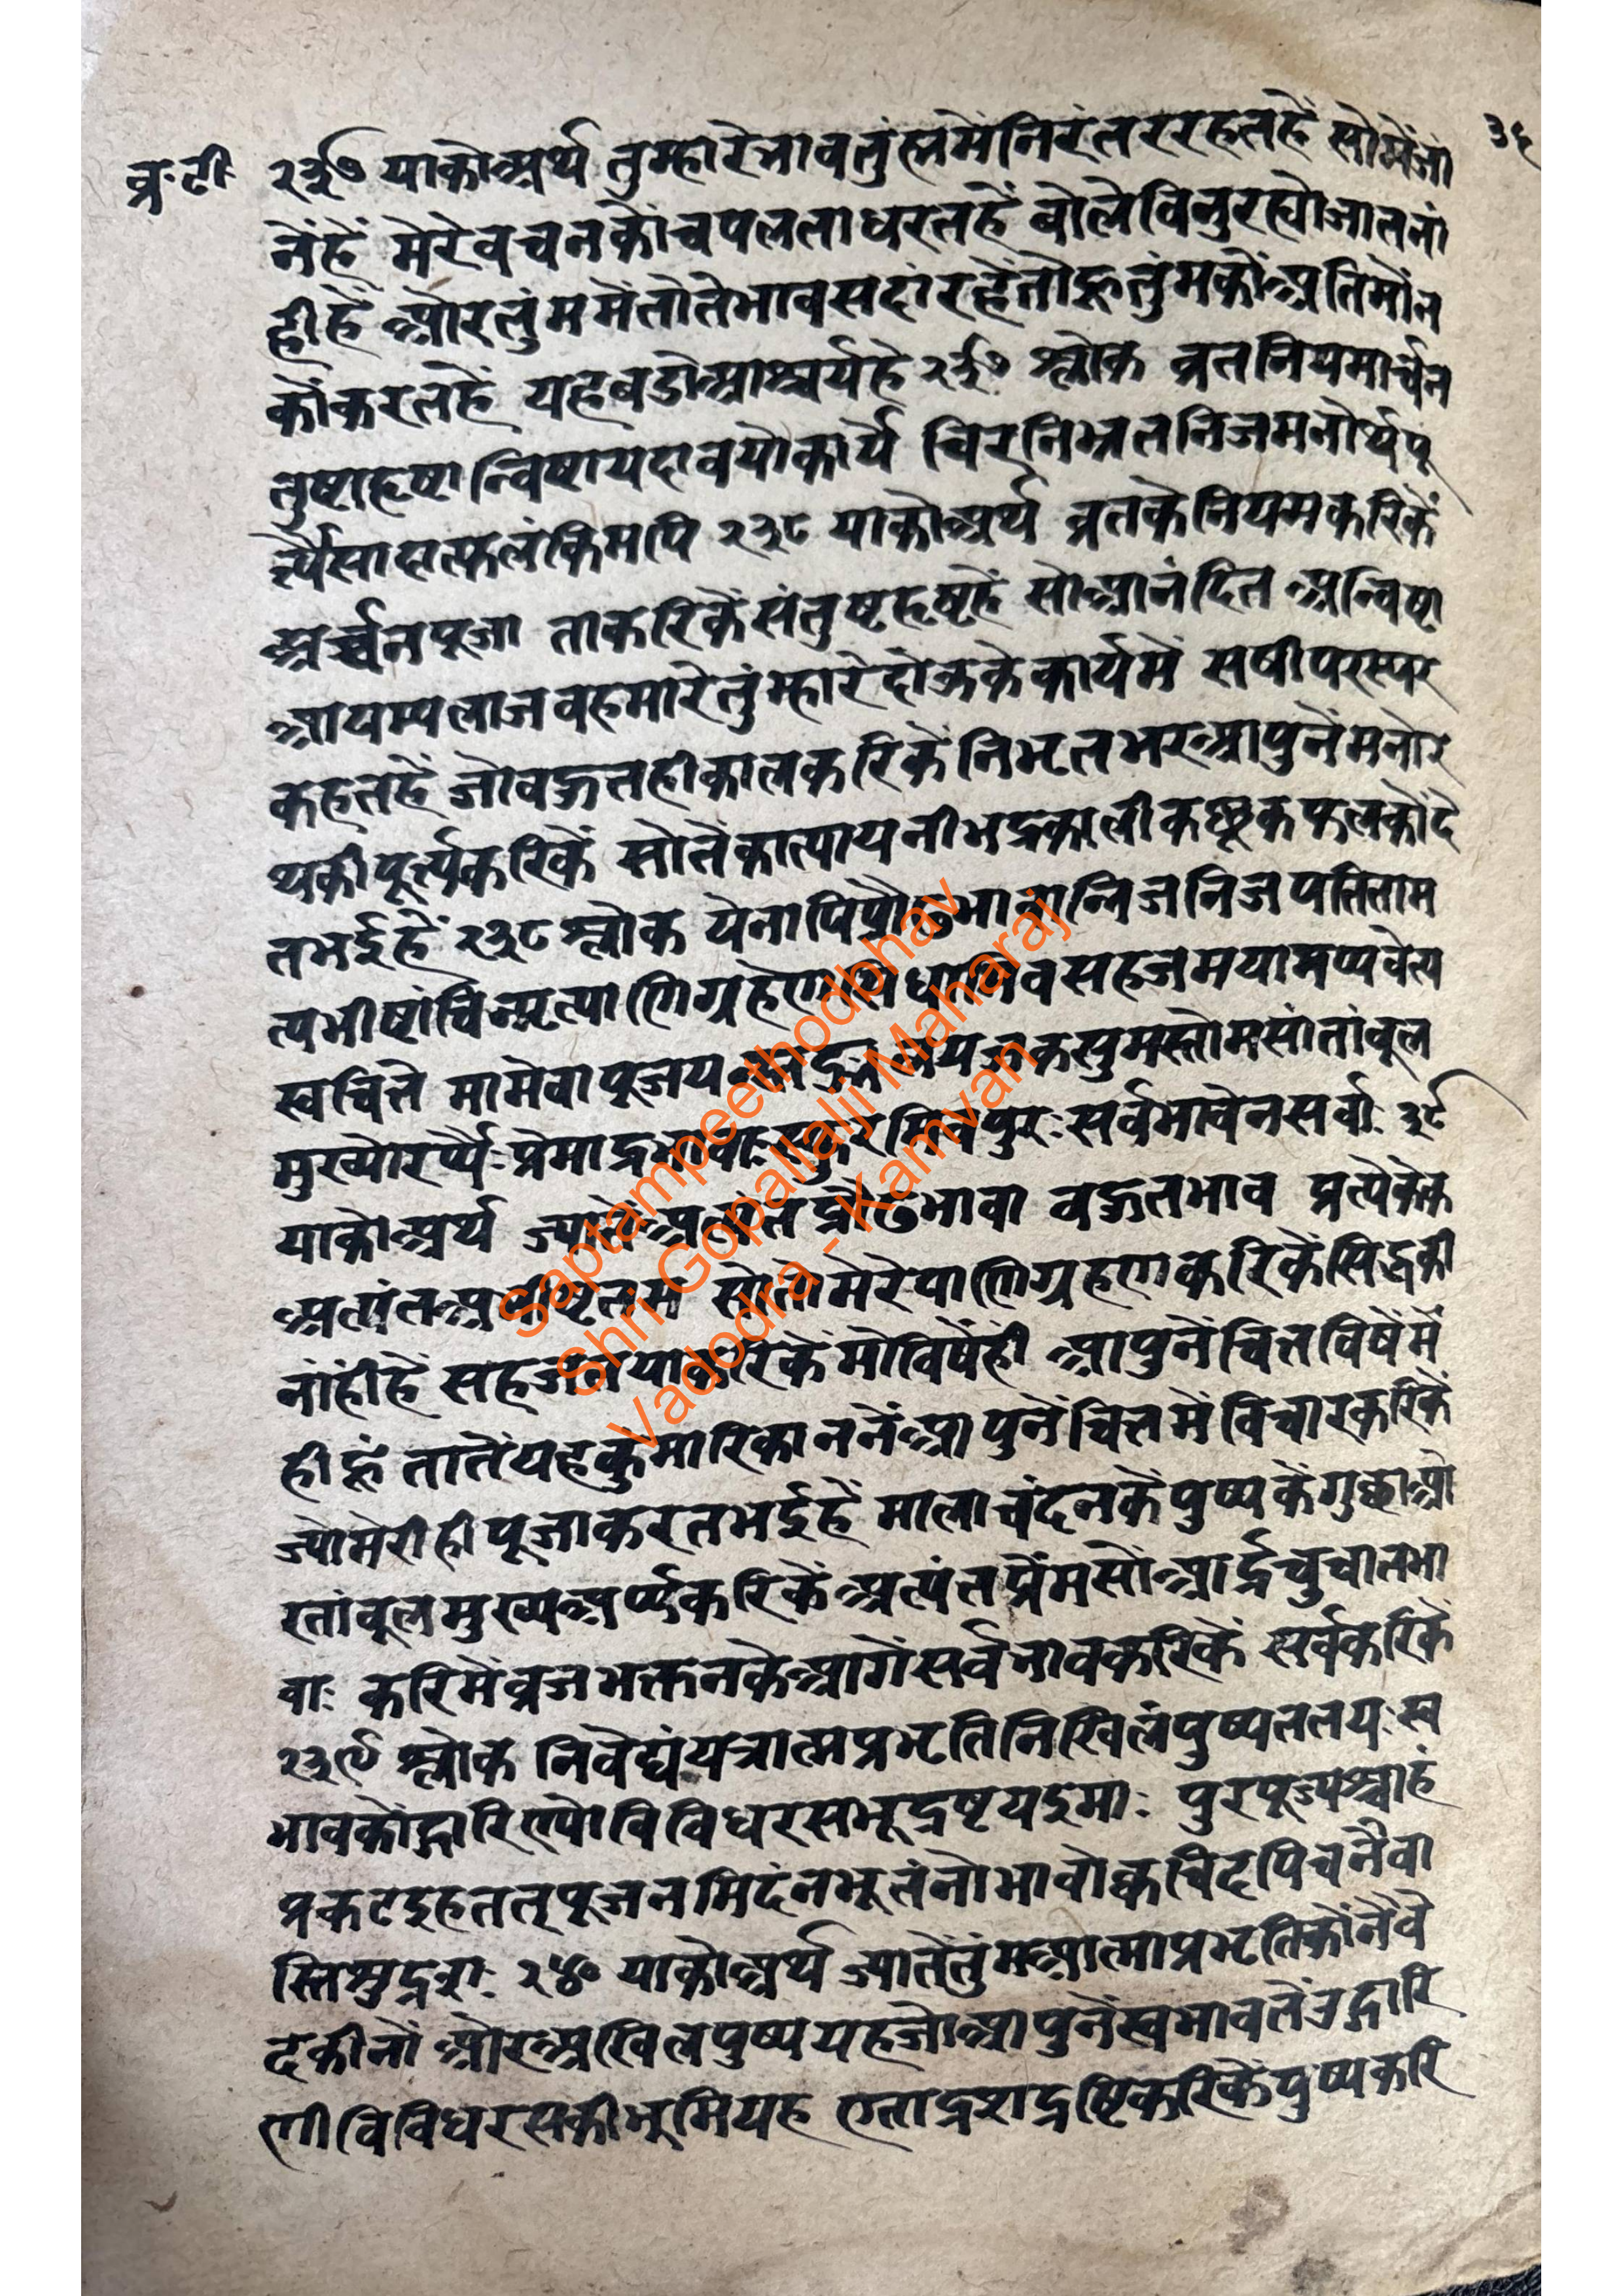 व्र॰टी॰
३६
२३७ याकोअर्थ तुम्हारेभावतुंह्ममेंनिरंतररहतहें सोमेंजां
नेंहें मेरेवचनकोंचपलताधरतहें बोलेविनुरह्योजातनां
हीहें ओरतुंममेंतोतेभावसदांरत्हेंतोहूतुंमकोंअतिमोंन
कोंकरतहें यहबडोआश्चर्यहे २३७ श्लोक व्रतनियमार्चन
तुष्टाहृष्टान्विष्टायदावयोकार्ये चिरनिभृतनिजमनोर्थपू
र्त्यैसादात्फलंकिमपि २३८ याकोअर्थ व्रतकेनियमकरिकें
अर्च्चनपूजा ताकरिकेंसंतुष्टहृष्टहें सोआनंदित अन्विष्टा
आयम्पलाजवहमारेतुंम्हारेदोऊकेकार्यमें सषीपरस्पर
कहतहें जोवऊतहीकालकरिकेंनिभृतभरआपुनेंमनोर
थकीपूर्त्यकरिकें सोतेंकात्यायनीभद्रकालीकछूकफलकोंदे
तभईहें २३८ श्लोक येनापिप्रौढभावान्निजनिजपतिताम
त्यभीष्टांचिन्मृत्पाणिग्रहेण सहजमयामप्यवेत्य
स्वचित्ते मामेवापूजय कसुमस्तोमसांतांवूल
मुरव्योरर्प्यैः प्रेमाद्रभावाः पुरः सर्वभावेनसर्वाः ३९
याकोअर्थ ज्यातें प्रौढभावा वऊतभाव प्रत्येकेक
अत्यंतअभीष्ट सोतोमेरेपाणिग्रहणकरिकेंसिद्धकी
नांहींहें सहज मोविषेंहीं आपुनेंचित्तविषेंमें
हीहूं तातेंयहकुंमारिकाननेंआपुनेंचित्तमेंविचारकरिकें
ज्योमेरीहीपूजाकरतभईहें मालाचंदनकेपुष्पकेंगुछाओ
रतांवूलमुख्यअर्प्यकरिकेंअत्यंतप्रेंमसोंआर्द्रचुचातभा
वाः करिमेंव्रजभक्तनकेआगेंसर्वभावकरिकें सर्वकरिकें
२३९ श्लोक निवेद्यंयत्रात्मप्रभृतिनिखिलंपुष्पततयः स्व
भावकोंद्गारिण्योविविधरसभूद्रष्टयइमाः पुरपूज्यश्चाहं
प्रकटइहततृपूजनमिदंनभूतंनोभावोक्वचिदपिचनैवा
स्तिसुद्रशः २४० याकोअर्थ ज्यातेंतुंमआत्माप्रभृतिकोंनैवे
दकीनों ओरअखिलपुष्पयहजोआपुनेंस्वभावतेंउद्गारि
णीविविधरसकीभूमियह एताद्रशद्रष्टिकरिकेंपुष्पकरि
Saptampeethodbhav
Shri Gopallalji Maharaj
Vadodra - Kamvan